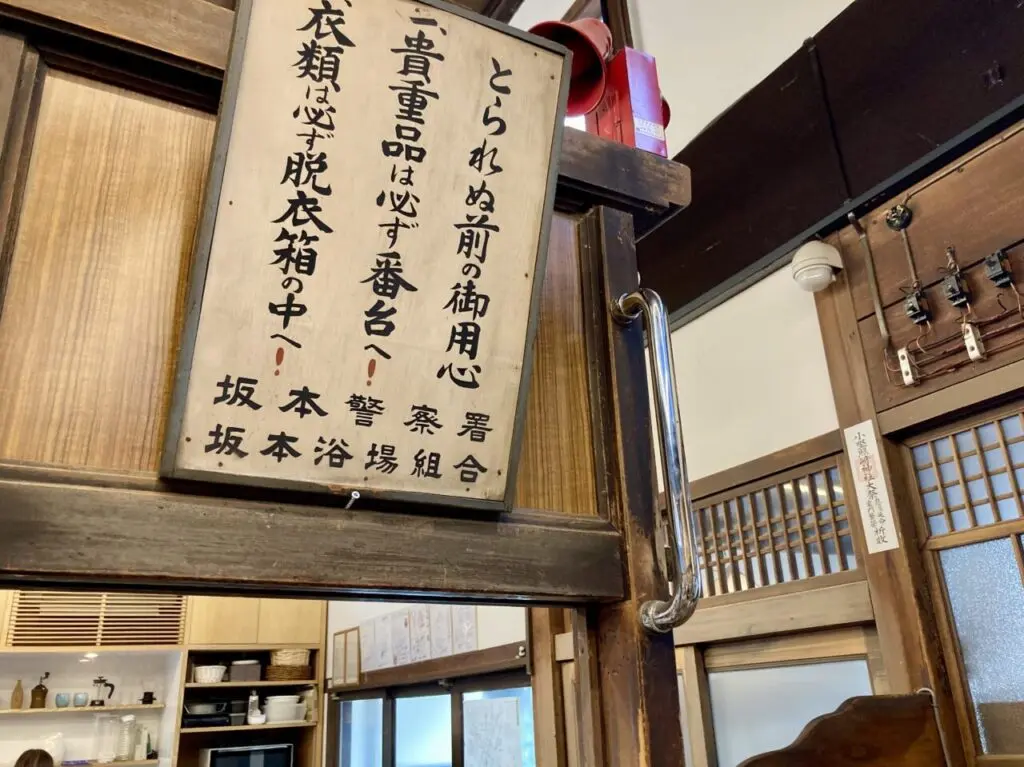 とられぬ前の御用心
一、貴重品は必ず番台へ!
衣類は必ず脱衣箱の中へ!
坂本警察署
坂本浴場組合